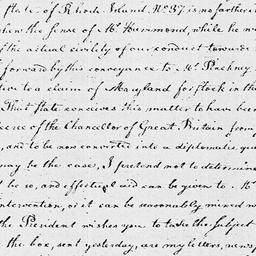 State of Rhode Island. No 37. is no farther
shew the sense of Mr. Hammond, while he w
of the actual civility of our conduct towards
forward by this conveyance to Mr. Pinckney
tive to a claim of Maryland for stock in th
That state conceives this matter to have been
ecree of the Chancellor of Great Britain from
and to be now converted into a diplomatic que
may be the case, I pretend not to determine
t be so, and effectual aid can be given to Mr
intervention, or it can be reasonably mixed w
the President wishes you to take the subject
the box, sent yesterday, are my letters, news